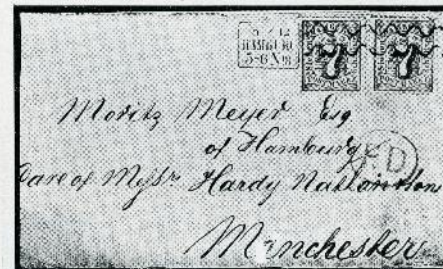 HAMBURG
5-6 N
7 7
Moritz Meyer Esq
of Hamburg
PD
Care of Messrs Hardy Nathan & Sons
Manchester